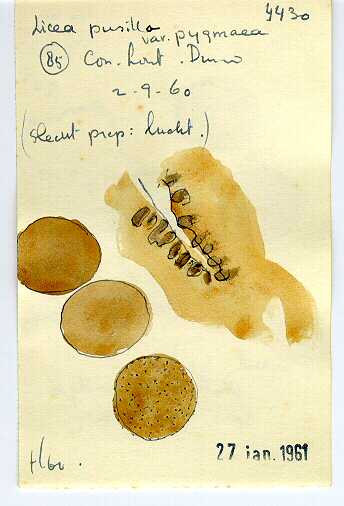 4430
Licea pusilla
var. pygmaea
85 Con. hout. Duin
2-9-60
(slecht prep: lucht.)
27 jan. 1961